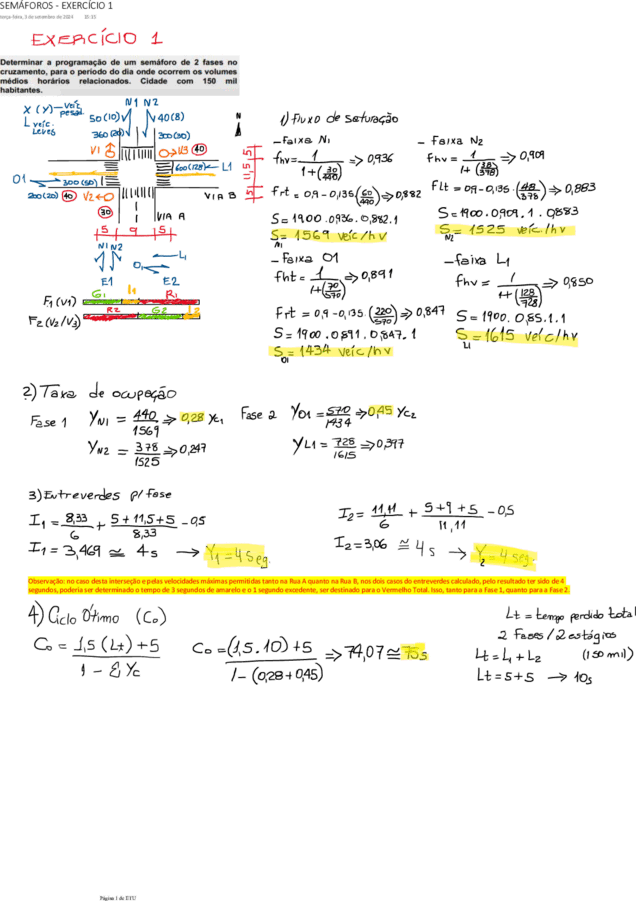 SEMÁFOROS - EXERCÍCIO 1
terça-feira, 3 de setembro de 2024 10:15
EXERCÍCIO 1
Determinar a programação de um semáforo de 2 fases no
cruzamento, para o período do dia onde ocorrem os volumes
médios horários relacionados. Cidade com 150 mil
habitantes.
X (Y) — veíc. pesal
L veíc. Leves
N1 N2
50(10) 40(8)
360(20) 300(30)
N
V1 V3 40
600(128) L1
O1
300(50)
200(20) 40 V2
VIA B
30
VIA A
5 11,5 5
5 9 5
N1 N2
L1
O1
E1 E2
G1 I1 R1
F1(V1)
R2 G2 I2
F2(V2/V3)
1) Fluxo de saturação
- Faixa N1
fhv = 1/(1+(30/440)) => 0,936
Frt = 0,9 - 0,135(60/440) => 0,882
S = 1900.0,936.0,882.1
S N1 = 1569 veíc/hv
- Faixa N2
Fhv = 1/(1+(38/378)) => 0,909
Flt = 0,9 - 0,135.(48/378) => 0,883
S = 1900.0,909.1.0,883
S N2 = 1525 veíc/hv
- Faixa O1
fht = 1/(1+(70/570)) => 0,891
Frt = 0,9 - 0,135.(220/570) => 0,847
S = 1900.0,891.0,847.1
S O1 = 1434 veíc/hv
- faixa L1
fhv = 1/(1+(128/728)) => 0,850
S = 1900.0,85.1.1
S L1 = 1615 veíc/hv
2) Taxa de ocupação
Fase 1 YN1 = 440/1569 => 0,28 Yc1
YN2 = 378/1525 => 0,247
Fase 2 YO1 = 570/1434 => 0,45 Yc2
YL1 = 728/1615 => 0,397
3) Entreverdes p/ fase
I1 = 8,33/6 + (5+11,5+5)/8,33 - 0,5
I1 = 3,469 ≅ 4s → Y1 = 4 seg.
I2 = 11,11/6 + (5+9+5)/11,11 - 0,5
I2 = 3,06 ≅ 4s → Y2 = 4 seg.
Observação: no caso desta interseção e pelas velocidades máximas permitidas tanto na Rua A quanto na Rua B, nos dois casos do entreverdes calculado, pelo resultado ter sido de 4
segundos, poderia ser determinado o tempo de 3 segundos de amarelo e o 1 segundo excedente, ser destinado para o Vermelho Total. Isso, tanto para a Fase 1, quanto para a Fase 2.
4) Ciclo Ótimo (Co)
Co = (1,5(Lt)+5)/(1-ΣYc)
Co = ((1,5.10)+5)/(1-(0,28+0,45)) => 74,07 ≅ 75s
Lt = tempo perdido total
2 Fases/2 estágios
Lt = L1 + L2 (150 mil)
Lt = 5+5 → 10s
Página 1 de ETU